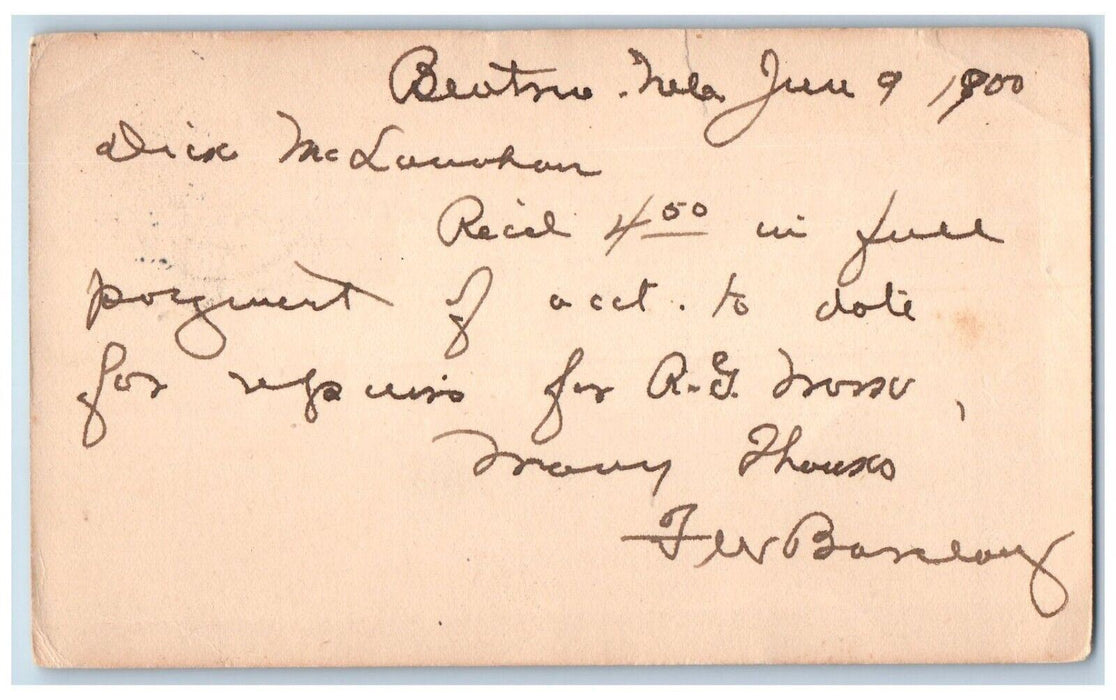 Beatrice. Neb. June 9 1900
Dick McLanahan
Rec'd 4 50 in full
payment of acct. to date
for repairs for R.G.
Many Thanks
F W Barclay